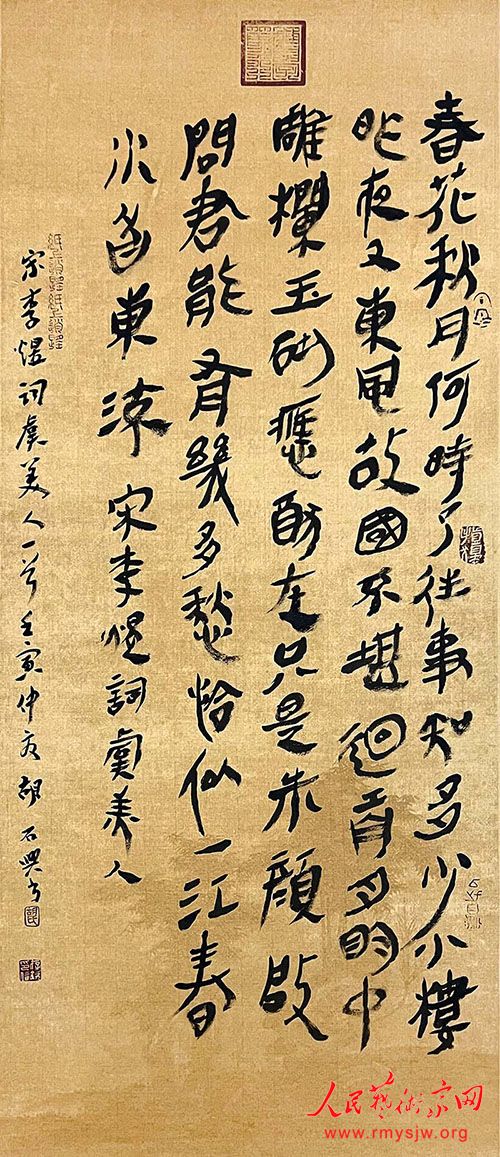 春花秋月何時了往事知多少小樓
昨夜又東風故國不堪迴首月明中
雕欄玉砌應猶在只是朱顏改
問君能有幾多愁恰似一江春
水向東流宋李煜詞虞美人
宋李煜词虞美人一首壬寅仲夏胡石興书
人民藝術家网
www.rmysjw.org